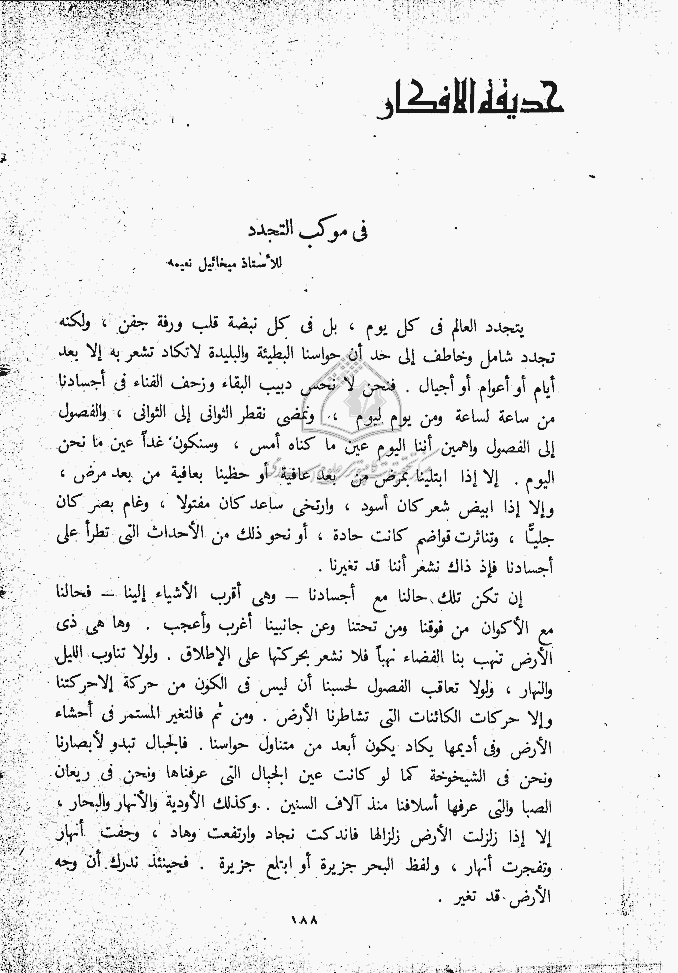 حديقة الافكار
فى موكب التجدد
للأستاذ ميخائيل نعيمه
يتجدد العالم فى كل يوم ، بل فى كل نبضة قلب ورفة جفن ، ولكنه
تجدد شامل وخاطف إلى حد أن حواسنا البطيئة والبليدة لاتكاد تشعر به إلا بعد
أيام أو أعوام أو أجيال . فنحن لا نحس دبيب البقاء وزحف الفناء فى أجسادنا
من ساعة لساعة ومن يوم ليوم ، ونمضى نقطر الثوانى إلى الثوانى ، والفصول
إلى الفصول واهمين أننا اليوم عين ما كناه أمس ، وسنكون غداً عين ما نحن
اليوم . إلا إذا ابتلينا بمرض من بعد عافية أو حظينا بعافية من بعد مرض ،
وإلا إذا ابيض شعر كان أسود ، وارتخى ساعد كان مفتولا ، وغام بصر كان
جليًّا ، وتناثرت قواضم كانت حادة ، أو نحو ذلك من الأحداث التى تطرأ على
أجسادنا فإذ ذاك نشعر أننا قد تغيرنا .
إن تكن تلك حالنا مع أجسادنا – وهى أقرب الأشياء إلينا – فحالنا
مع الأكوان من فوقنا ومن تحتنا وعن جانبينا أغرب وأعجب . وها هى ذى
الأرض تنهب بنا الفضاء نهباً فلا نشعر بحركتها على الإطلاق . ولولا تناوب الليل
والنهار ، ولولا تعاقب الفصول لحسبنا أن ليس فى الكون من حركة إلا حركتنا
وإلا حركات الكائنات التى تشاطرنا الأرض . ومن ثم فالتغير المستمر فى أحشاء
الأرض وفى أديمها يكاد يكون أبعد من متناول حواسنا . فالجبال تبدو لأبصارنا
ونحن فى الشيخوخة كما لو كانت عين الجبال التى عرفناها ونحن فى ريعان
الصبا والتى عرفها أسلافنا منذ آلاف السنين . وكذلك الأودية والأنهار والبحار ،
إلا إذا زلزلت الأرض زلزالها فاندكت نجاد وارتفعت وهاد ، وجفت أنهار
وتفجرت أنهار ، ولفظ البحر جزيرة أو ابتلع جزيرة . فحينئذ ندرك أن وجه
الأرض قد تغير .
١٨٨